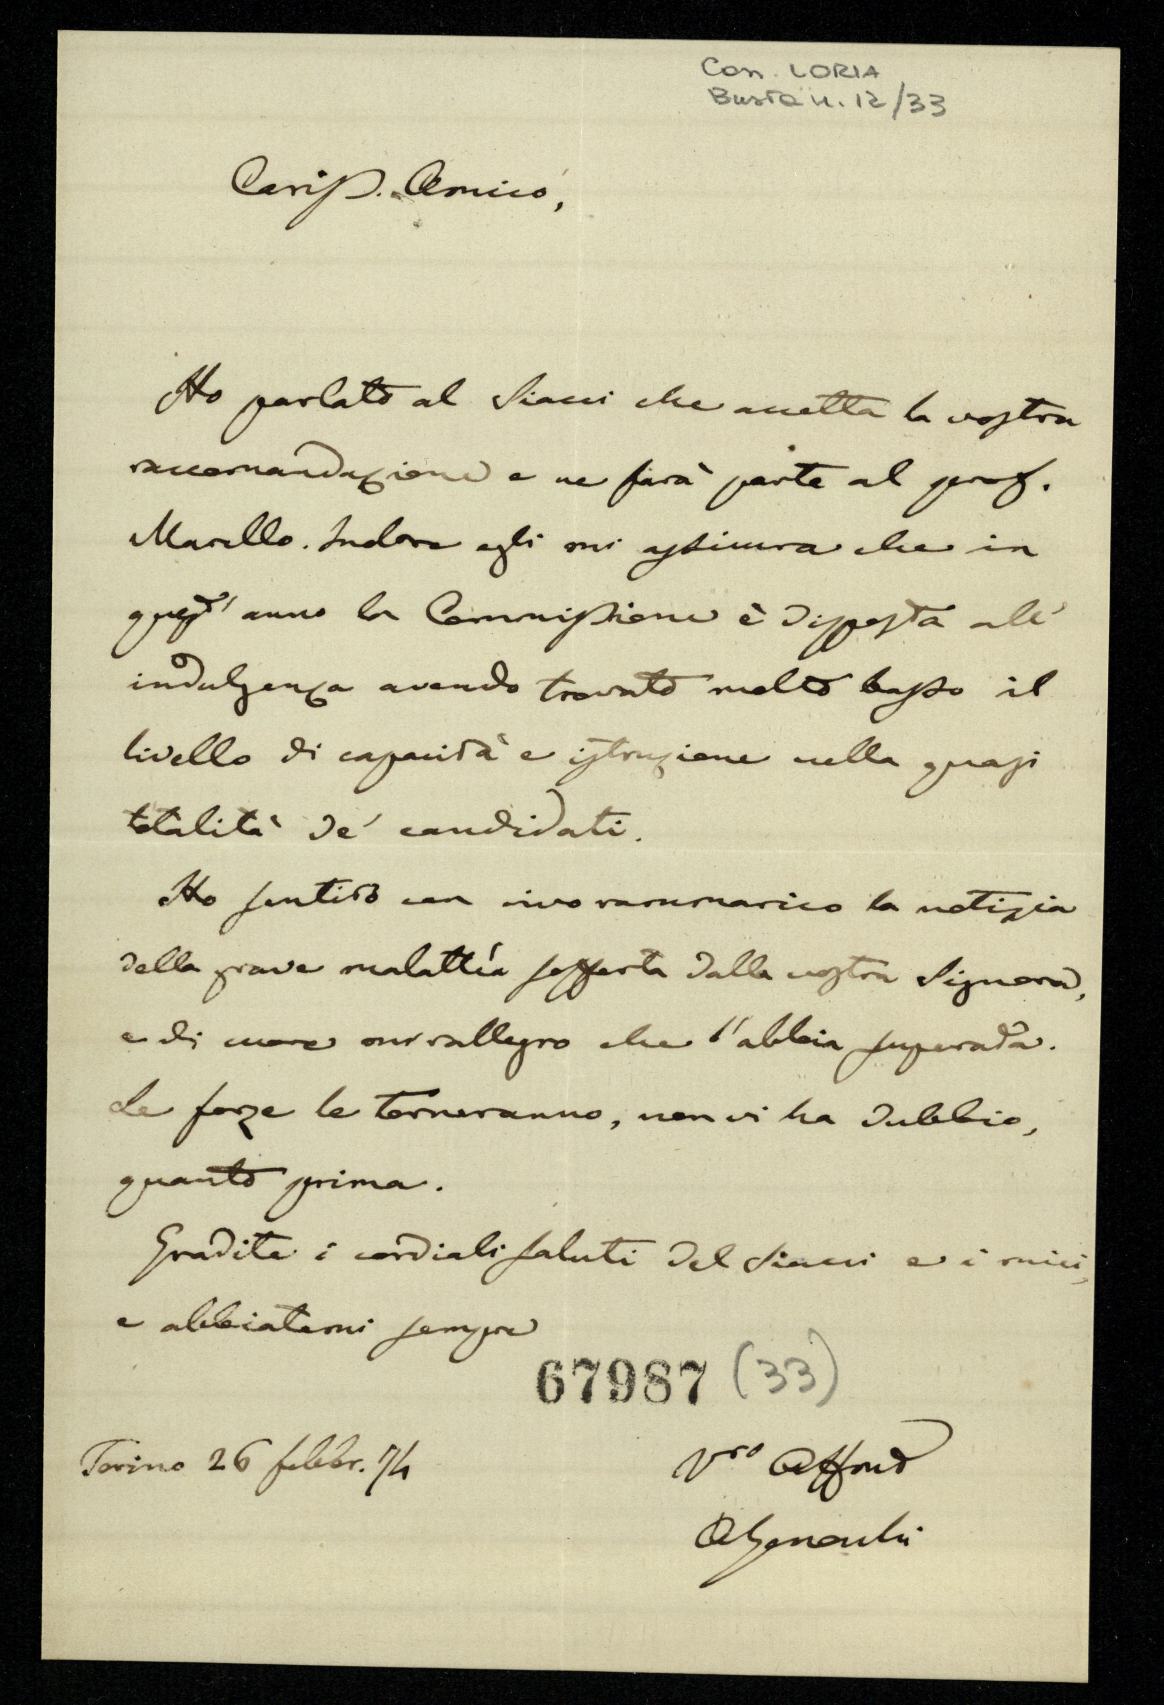 Con. LORIA
Busta n. 12/33
Cariss. Amico,
Ho parlato al Siacci che accetta la vostra
raccomandazione e ne farà parte al prof.
Marello. Indora egli mi assicura che in
quest' anno la Commissione è disposta all'
indulgenza avendo trovato molto basso il
livello di capacità e istruzione nella quasi
totalità de' candidati.
Ho sentito con vivo rammarico la notizia
della grave malattia sofferta dalla vostra Signora,
e di cuore mi rallegro che l'abbia superata.
Le forze le torneranno, non vi ha dubbio,
quanto prima.
Gradite i cordiali saluti del Siacci e i miei,
e abbiatemi sempre
67987 (33)
Torino 26 febbr. 74
Vro Affmo
A Genocchi